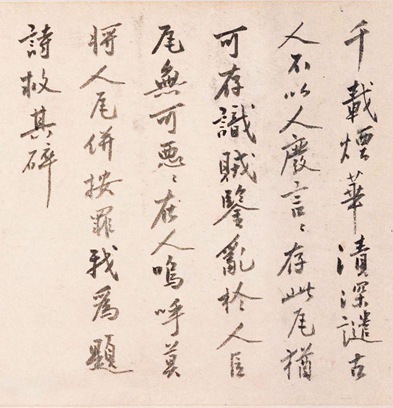 千載煙華漬深譴古
人不以人廢言〻存此尾猶
可存識賊鑒亂於人臣
尾無可悪〻在人嗚呼莫
將人尾併按罪我為題
詩救其碎